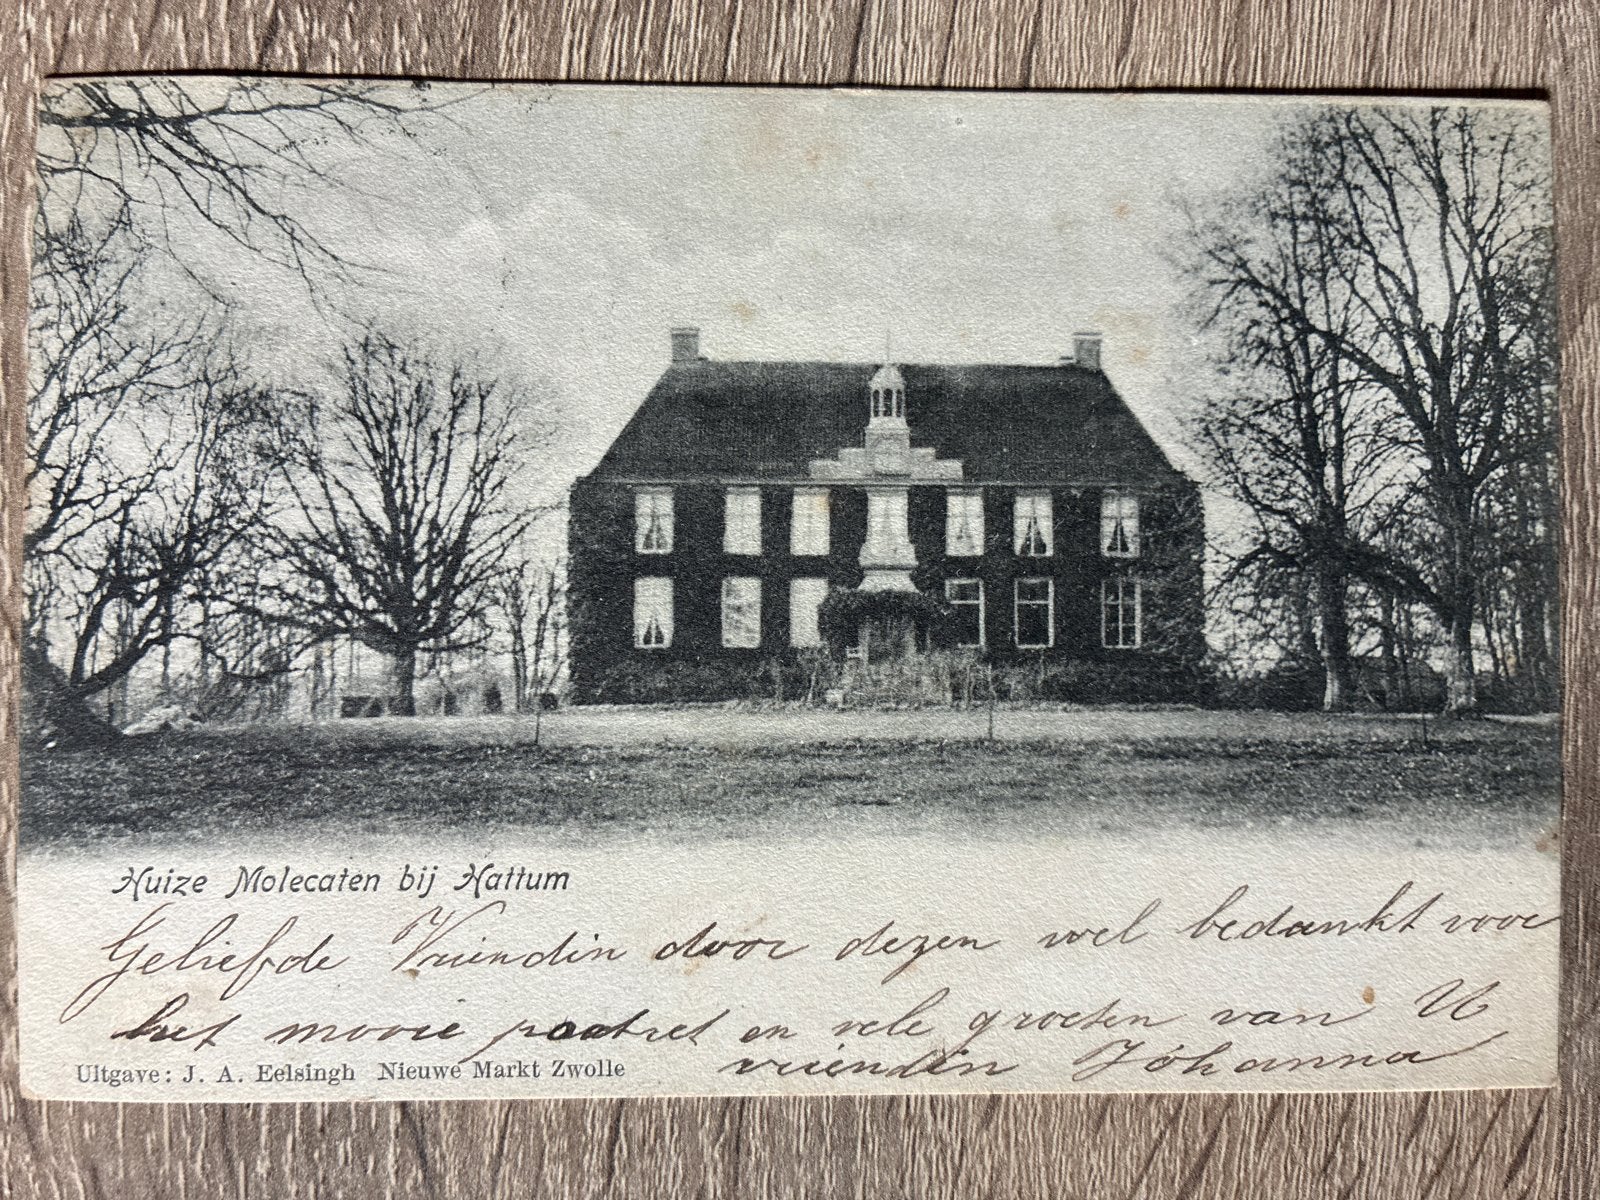 Huize Molecaten bij Hattum
Geliefde Vriendin door dezen wel bedankt voor
het mooie poatret en vele groeten van U
vriendin Johanna
Uitgave: J. A. Eelsingh Nieuwe Markt Zwolle